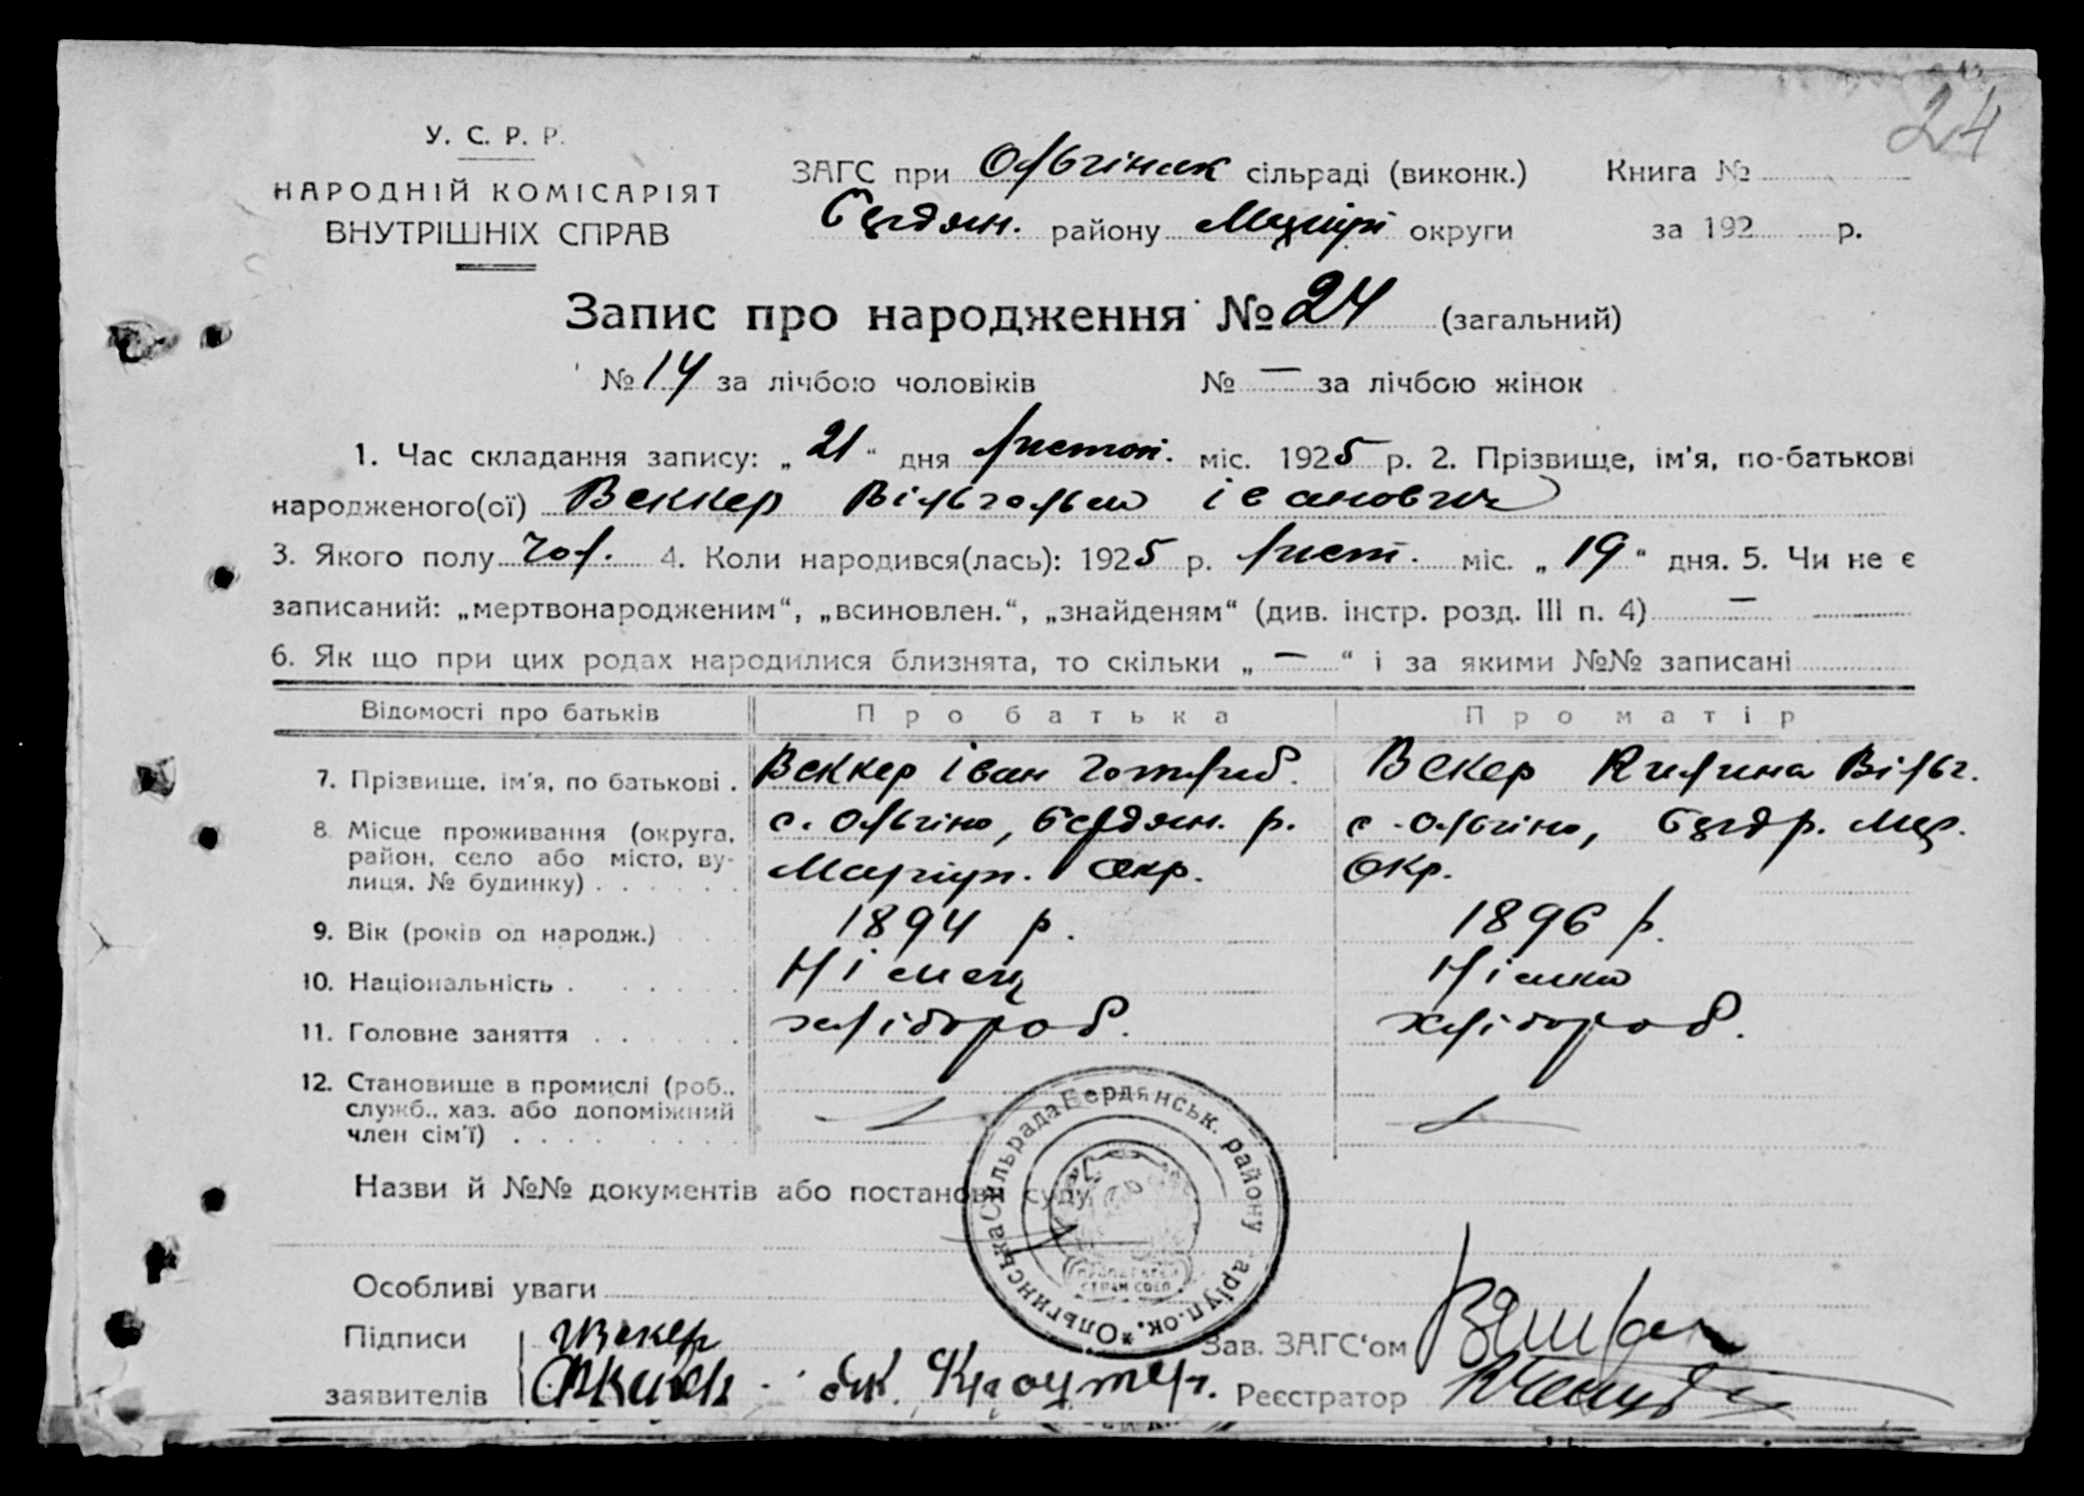 24
У. С. Р. Р.
НАРОДНІЙ КОМІСАРІЯТ
ВНУТРІШНІХ СПРАВ
ЗАГС при Ольгінськ сільраді (виконк.) Книга №
Бердян. району Маріуп округи за 192 р.
Запис про народження № 24 (загальний)
№ 14 за лічбою чоловіків № — за лічбою жінок
1. Час складання запису: „ 21 “ дня листоп. міс. 1925 р. 2. Прізвище, ім'я, по-батькові
народженого(ої) Веккер Вільгельм Іванович
3. Якого полу чол. 4. Коли народився(лась): 1925 р. лист. міс. „ 19 “ дня. 5. Чи не є
записаний: „мертвонародженим“, „всиновлен.“, „знайденям“ (див. інстр. розд. III п. 4) —
6. Як що при цих родах народилися близнята, то скільки „ — “ і за якими №№ записані
Відомості про батьків Про батька Про матір
7. Прізвище, ім'я, по батькові . Веккер Іван Готліб. Векер Вільг.
8. Місце проживання (округа, район, село або місто, вулиця, № будинку) . . . . . с. Ольгіно, Бердян. р. Маріуп. Окр. с. Ольгіно, Берд р. Мар. Окр.
9. Вік (років од народж.) 1894 р. 1896 р.
10. Національність . . . . . . Німець Німка
11. Головне заняття . . . . . хлібороб. хлібороб.
12. Становище в промислі (роб., служб., хаз. або допоміжний член сім'ї) . . . . —
Назви й №№ документів або постанови суду
Ольгинська Сільрада Бердянськ. району Маріуп. ок. *
Особливі уваги
Підписи Векер Зав. ЗАГС'ом
заявителів Реєстратор